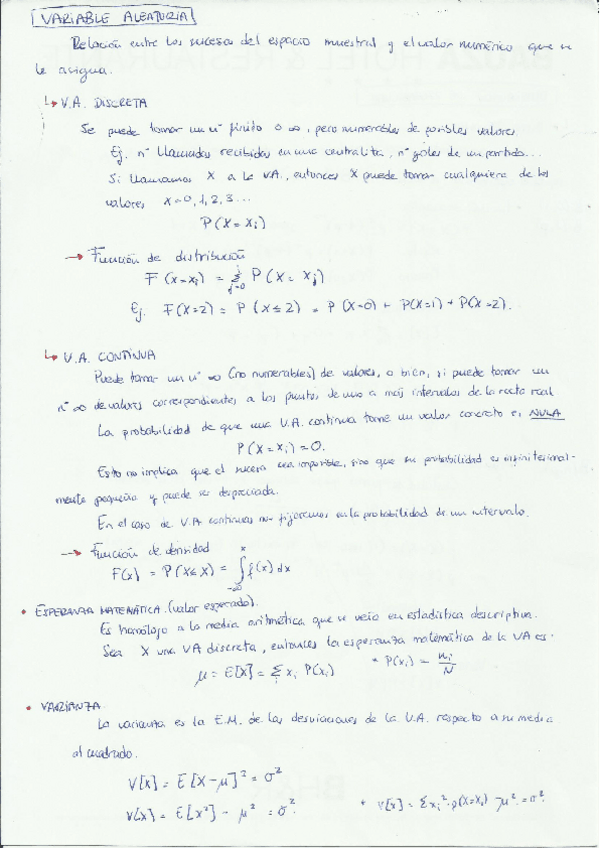 VARIABLE ALEATORIA
Relación entre los sucesos del espacio muestral y el valor numérico que se
le asigna.
↳ V.A. DISCRETA
Se puede tomar un nº finito o ∞, pero numerables de posibles valores
Ej. nº llamadas recibidas en una centralita, nº goles de un partido...
Si llamamos X a la V.A., entonces X puede tomar cualquiera de los
valores x=0,1,2,3...
P(X=xi)
→ Función de distribución
F(x=xi) = Σ P(X=xj)
j=0
Ej. F(X=2) = P(X≤2) = P(X=0) + P(X=1) + P(X=2).
↳ V.A. CONTINUA
Puede tomar un nº ∞ (no numerables) de valores, o bien, si puede tomar un
nº ∞ de valores correspondientes a los puntos de uno o más intervalos de la recta real
La probabilidad de que una V.A. continua tome un valor concreto es NULA
P(X=xi)=0.
Esto no implica que el suceso sea imposible, sino que su probabilidad es infinitesimal-
mente pequeña y puede ser despreciada.
En el caso de V.A continuas nos fijaremos en la probabilidad de un intervalo.
→ Función de densidad
F(x) = P(X≤x) = ∫ f(x) dx
• ESPERANZA MATEMÁTICA. (valor esperado).
Es homólogo a la media aritmética que se veía en estadística descriptiva.
Sea X una VA discreta, entonces la esperanza matemática de la VA es:
μ = E[X] = Σ xi P(xi) * P(xi) = ni/N
• VARIANZA
La varianza es la E.M. de las desviaciones de la V.A. respecto a su media
al cuadrado.
V[X] = E[X-μ]² = σ²
V[X] = E[X²] - μ² = σ². * V[X] = Σ xi²·p(X=xi) - μ² = σ².